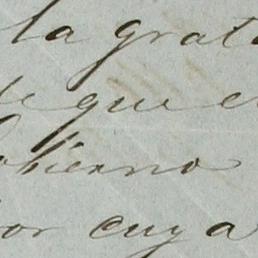 la grat
de que e
obierno
or cuya